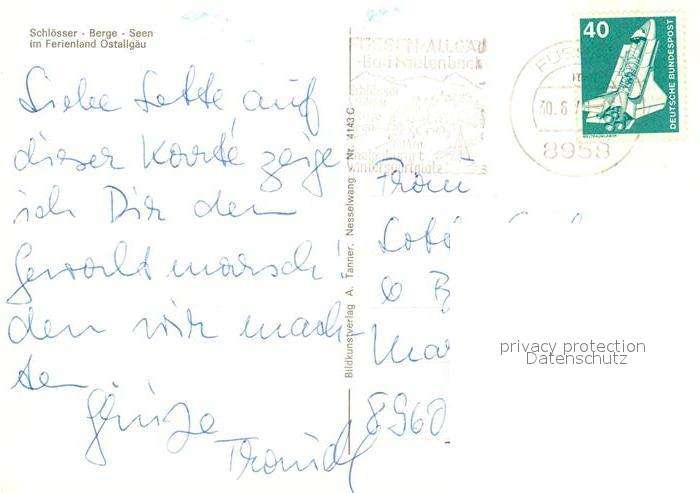 Schlösser · Berge · Seen
im Ferienland Ostallgäu
Liebe Lotte, auf
dieser Karte zeige
ich Dir den
Gewaltmarsch
den wir mach-
ten
Grüße
Traudl
Bildkunstverlag A. Tanner, Nesselwang · Nr. 4143 C
FÜSSEN-ALLGÄU
-Bad Faulenbach
Wintersportplatz
FÜSS
8958
40
DEUTSCHE BUNDESPOST
Frau
Lot
6 B
Ma
8960
privacy protection
Datenschutz